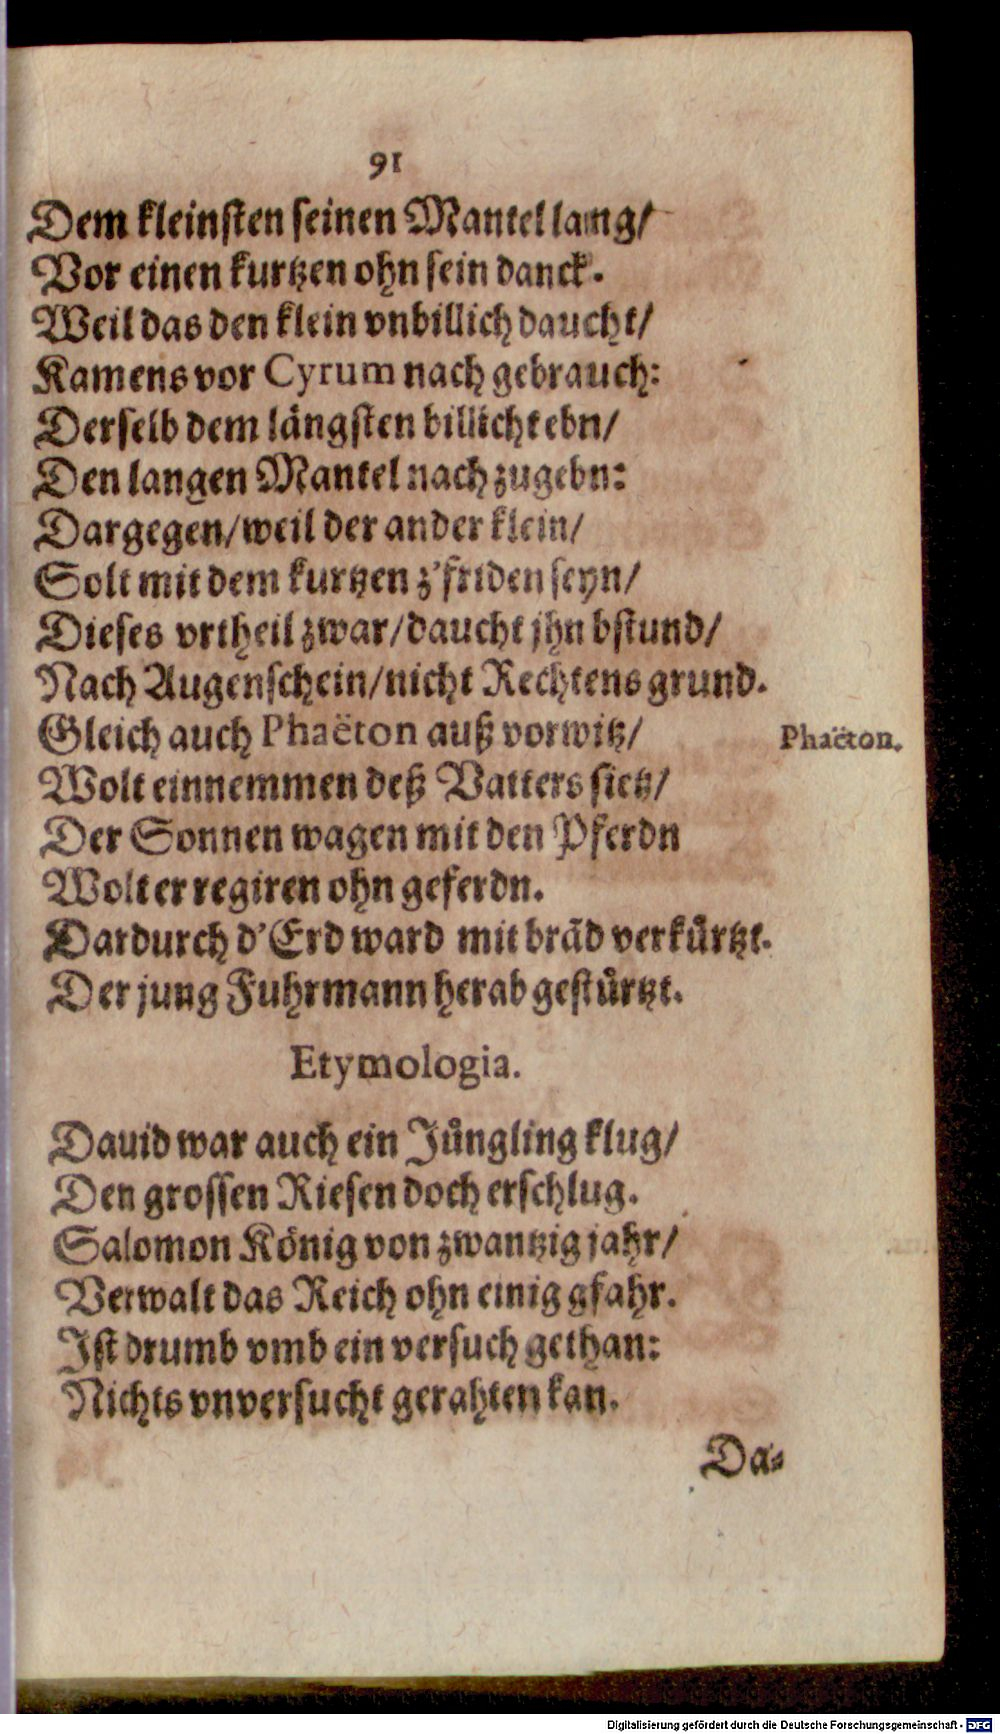 91
Dem kleinsten seinen Mantel lang/
Vor einen kurtzen ohn sein danck.
Weil das den klein vnbillich daucht/
Kamens vor Cyrum nach gebrauch:
Derselb dem längsten billicht ebn/
Den langen Mantel nach zugebn:
Dargegen/weil der ander klein/
Solt mit dem kurtzen z'friden seyn/
Dieses vrtheil zwar/daucht jhn bstund/
Nach Augenschein/nicht Rechtens grund.
Gleich auch Phaëton auß vorwitz/
Phaëton.
Wolt einnemmen deß Vatters sietz/
Der Sonnen wagen mit den Pferdn
Wolt er regiren ohn geferdn.
Dardurch d'Erd ward mit bräd verkůrtzt.
Der jung Fuhrmann herab gestůrtzt.
Etymologia.
Dauid war auch ein Jůngling klug/
Den grossen Riesen doch erschlug.
Salomon König von zwantzig jahr/
Verwalt das Reich ohn einig gfahr.
Ist drumb vmb ein versuch gethan:
Nichts vnversucht gerahten kan.
Da-
Digitalisierung gefördert durch die Deutsche Forschungsgemeinschaft - DFG